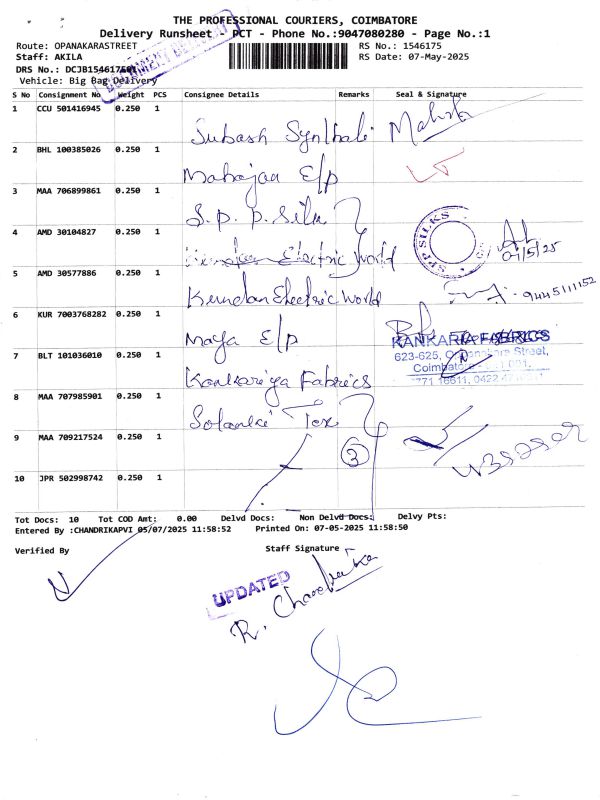 THE PROFESSIONAL COURIERS, COIMBATORE
Delivery Runsheet - PCT - Phone No.:9047080280 - Page No.:1
Route: OPANAKARASTREET RS No.: 1546175
Staff: AKILA RS Date: 07-May-2025
DRS No.: DCJB1546175
Vehicle: Big Bag Delivery
S No Consignment No Weight PCS Consignee Details Remarks Seal & Signature
1 CCU 501416945 0.250 1
Subash Synthati
2 BHL 100385026 0.250 1
Mahajan E/p
3 MAA 706899861 0.250 1
S.P.P. Silk
SPP SILKS
4 AMD 30104827 0.250 1
Kundan Electric World
07/5/25
5 AMD 30577886 0.250 1
Kundan Electric World
9445111152
6 KUR 7003768282 0.250 1
Maya E/p
KANKARIA FABRICS
7 BLT 101036010 0.250 1
623-625, Street,
Kankariya Fabrics
8 MAA 707985901 0.250 1
Solanki Tex
9 MAA 709217524 0.250 1
3
10 JPR 502998742 0.250 1
Tot Docs: 10 Tot COD Amt: 0.00 Delvd Docs: Non Delvd Docs: Delvy Pts:
Entered By :CHANDRIKAPVI 05/07/2025 11:58:52 Printed On: 07-05-2025 11:58:50
Verified By Staff Signature
UPDATED
R. Chandrika